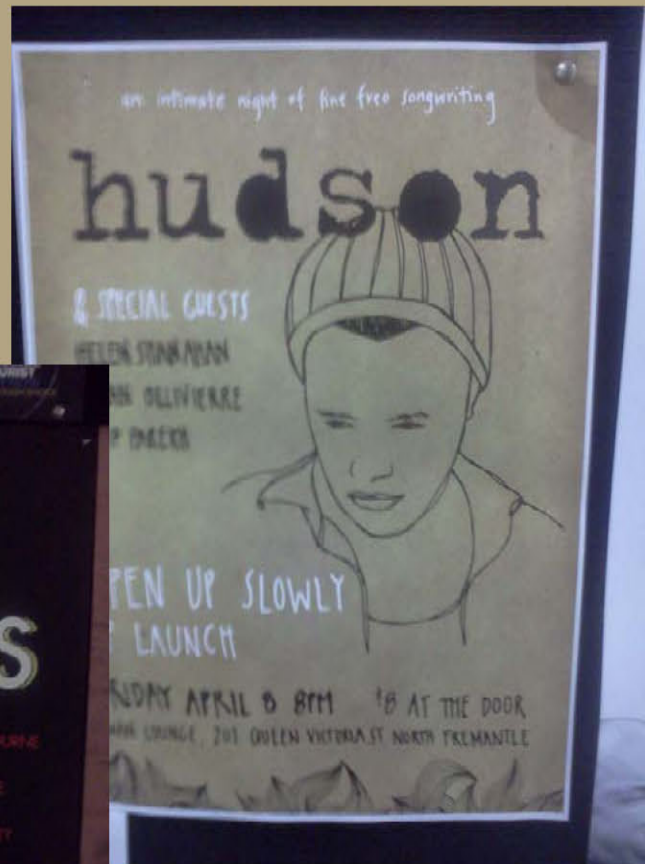 an intimate night of fine freo songwriting
hudson
& SPECIAL GUESTS
HELEN SHANAHAN
OLLIVIERRE
PAREKH
PEN UP SLOWLY
LAUNCH
RIDAY APRIL 8 8PM $8 AT THE DOOR
LOUNGE, 201 QUEEN VICTORIA ST NORTH FREMANTLE
URIST
S
URNE